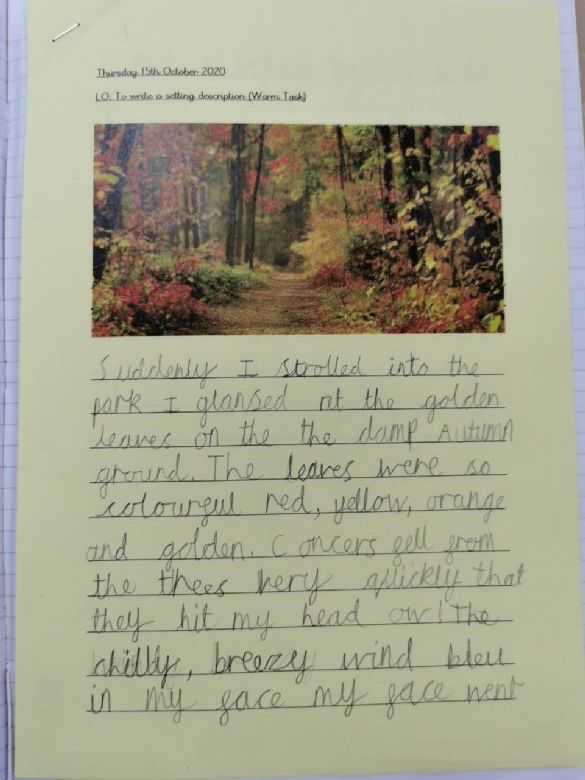 Thursday 15th October 2020
LO: To write a setting description (Warm Task)
Suddenly I strolled into the
park I glansed at the golden
leaves on the the damp Autumn
ground. The leaves were so
colourful red, yellow, orange
and golden. Concers fell from
the thees very quickly that
they hit my head ow! The
chilldy, breezy wind bleu
in my face my face went